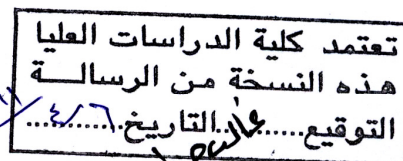 تعتمد كلية الدراسات العليا
هذه النسخة من الرسالــة
التوقيع...........التاريخ ٤/٦